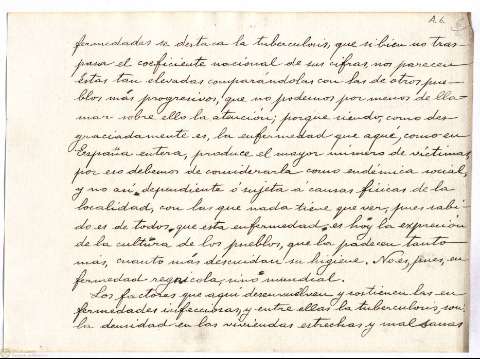 A.6.
fermedades se destaca la tuberculosis, que si bien no tras-
pasa el coeficiente nacional de sus cifras nos parecen
éstas tan elevadas comparándolas con las de otros pue-
blos más progresivos, que no podemos por menos de lla-
mar sobre ello la atención; porque siendo, como des-
graciadamente es, la enfermedad que aquí, como en
España entera, produce el mayor número de víctimas,
por eso debemos de considerarla como endémica social,
y no así dependiente ó sujeta a causas físicas de la
localidad, con las que nada tiene que ver, pues sabi-
do es de todos, que esta enfermedad es hoy la expresión
de la cultura de los pueblos, que la padecen tanto
más, cuanto más descuidan su higiene. No es, pues, en-
fermedad regnícola, sino mundial.
Los factores que aquí desenvuelven y sostienen las en-
fermedades infecciosas, y entre ellas la tuberculosis, son:
la densidad en las viviendas estrechas y mal sanas